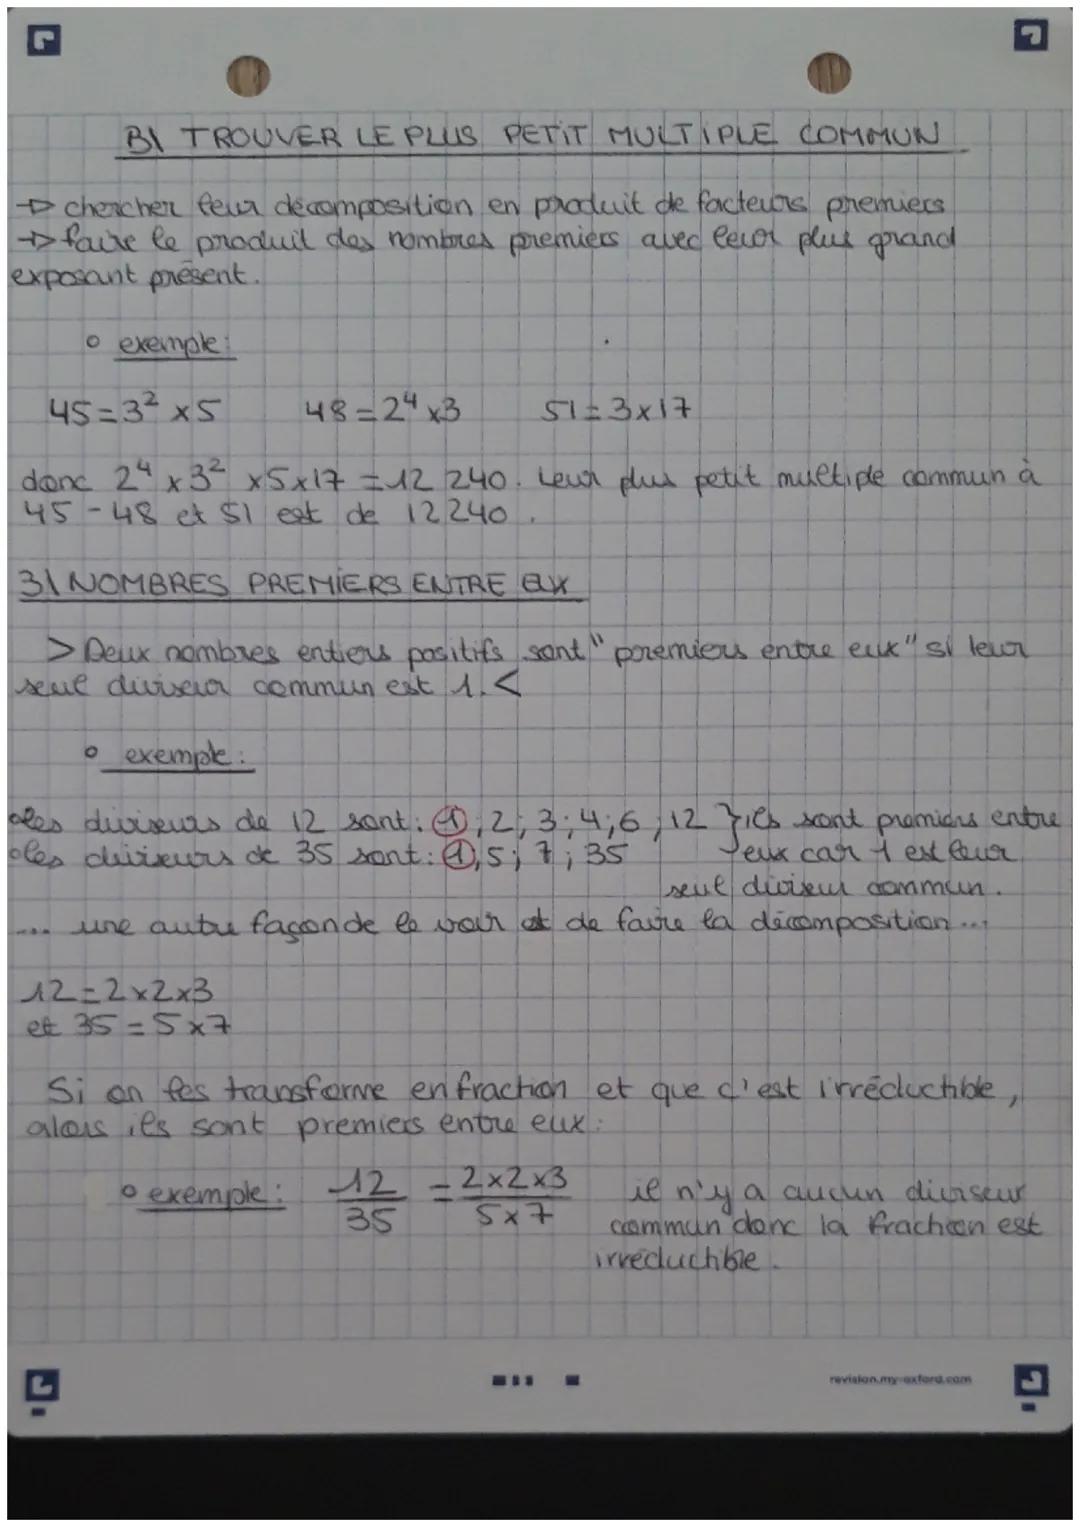 B\ TROUVER LE PLUS PETIT MULTIPLE COMMUN
→ chercher leur décomposition en produit de facteurs premiers
→ faire le produit des nombres premiers avec leur plus grand
exposant présent.
° exemple:
45 = 3² × 5 48 = 2⁴ × 3 51 = 3 × 17
donc 2⁴ × 3² × 5 × 17 = 12 240. Leur plus petit multiple commun à
45 - 48 et 51 est de 12240.
3\ NOMBRES PREMIERS ENTRE EUX
> Deux nombres entiers positifs sont "premiers entre eux" si leur
seul diviseur commun est 1. <
° exemple:
• les diviseurs de 12 sont: 1; 2; 3; 4; 6; 12 } ils sont premiers entre
• les diviseurs de 35 sont: 1; 5; 7; 35 eux car 1 est leur
seul diviseur commun.
... une autre façon de le voir est de faire la décomposition ...
12 = 2 × 2 × 3
et 35 = 5 × 7
Si on les transforme en fraction et que c'est irréductible,
alors ils sont premiers entre eux:
° exemple: 12/35 = 2×2×3/5×7 il n'y a aucun diviseur
commun donc la fraction est
irréductible.
revision.my-oxford.com